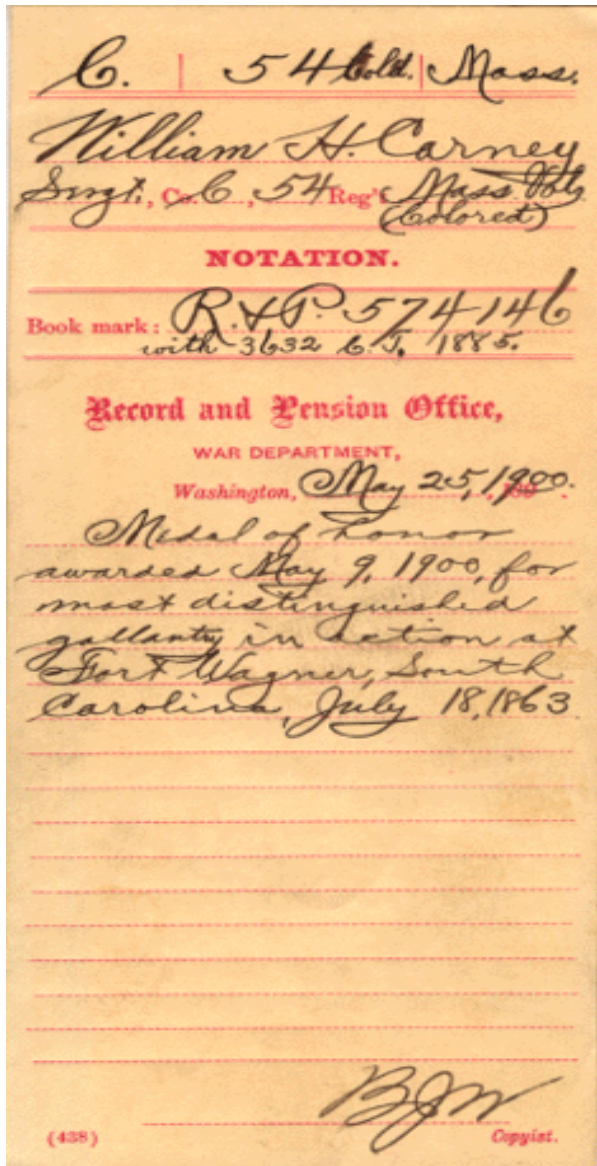 C. | 54 Cold. | Mass.
William H. Carney
Sergt., Co. C, 54 Reg't Mass. Vols.
(Colored)
NOTATION.
Book mark: R. & P. 574146
with 3632 C. T. 1885.
Record and Pension Office,
WAR DEPARTMENT,
Washington, May 25, 1900.
Medal of honor
awarded May 9, 1900, for
most distinguished
gallantry in action at
Fort Wagner, South
Carolina, July 18, 1863
BJW
(438) Copyist.